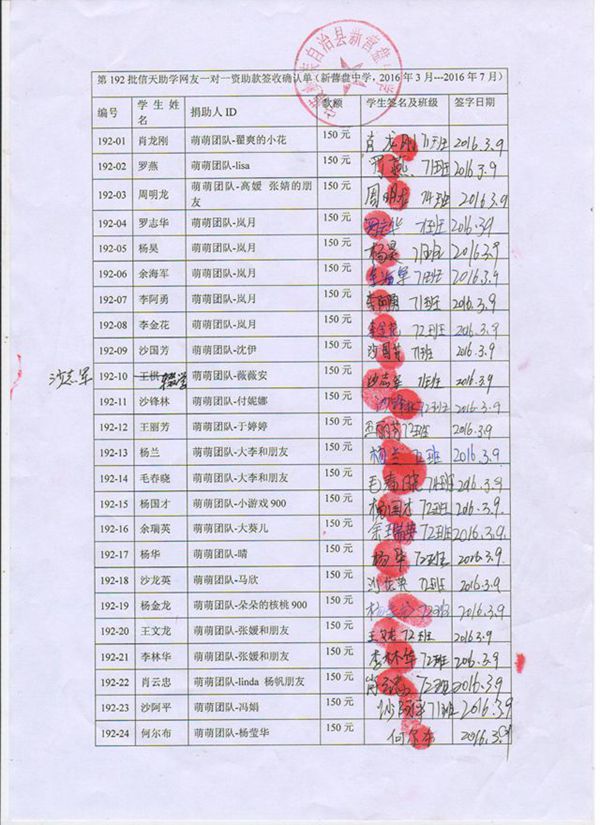 自治县新营盘中学
第192批信天助学网友一对一资助款签收确认单(新营盘中学,2016年3月---2016年7月)
编号 学生姓名 捐助人ID 款额 学生签名及班级 签字日期
192-01 肖龙刚 萌萌团队-翟爽的小花 150元 肖龙刚 71班 2016.3.9
192-02 罗燕 萌萌团队-lisa 150元 罗燕 71班 2016.3.9
192-03 周明龙 萌萌团队-高媛 张婧的朋友 150元 周明龙 74班 2016.3.9
192-04 罗志华 萌萌团队-岚月 150元 罗志华 2016.3.9
192-05 杨昊 萌萌团队-岚月 150元 杨昊 71班 2016.3.9
192-06 余海军 萌萌团队-岚月 150元 余海军 71班 2016.3.9
192-07 李阿勇 萌萌团队-岚月 150元 李阿勇 71班 2016.3.9
192-08 李金花 萌萌团队-岚月 150元 李金花 72班 2016.3.9
192-09 沙国芳 萌萌团队-沈伊 150元 沙国芳 71班 2016.3.9
沙志军 192-10 王棋 辍学 萌萌团队-薇薇安 150元 沙志军 71班 2016.3.9
192-11 沙锋林 萌萌团队-付妮娜 150元 沙锋林 72班 2016.3.9
192-12 王丽芳 萌萌团队-于婷婷 150元 王丽芳 72班 2016.3.9
192-13 杨兰 萌萌团队-大李和朋友 150元 杨兰 班 2016.3.9
192-14 毛春晓 萌萌团队-大李和朋友 150元 毛春晓 71班 2016.3.9
192-15 杨国才 萌萌团队-小游戏900 150元 杨国才 72班 2016.3.9
192-16 余瑞英 萌萌团队-大葵儿 150元 余瑞英 72班 2016.3.9
192-17 杨华 萌萌团队-晴 150元 杨华 72班 2016.3.9
192-18 沙龙英 萌萌团队-马欣 150元 沙龙英 72班 2016.3.9
192-19 杨金龙 萌萌团队-朵朵的核桃900 150元 杨金龙 72班 2016.3.9
192-20 王文龙 萌萌团队-张媛和朋友 150元 王文龙 72班 2016.3.9
192-21 李林华 萌萌团队-张媛和朋友 150元 李林华 72班 2016.3.9
192-22 肖云忠 萌萌团队-linda 杨帆朋友 150元 肖云忠 72班 2016.3.9
192-23 沙阿平 萌萌团队-冯娟 150元 沙阿平 71班 2016.3.9
192-24 何尔布 萌萌团队-杨莹华 150元 何尔布 2016.3.9